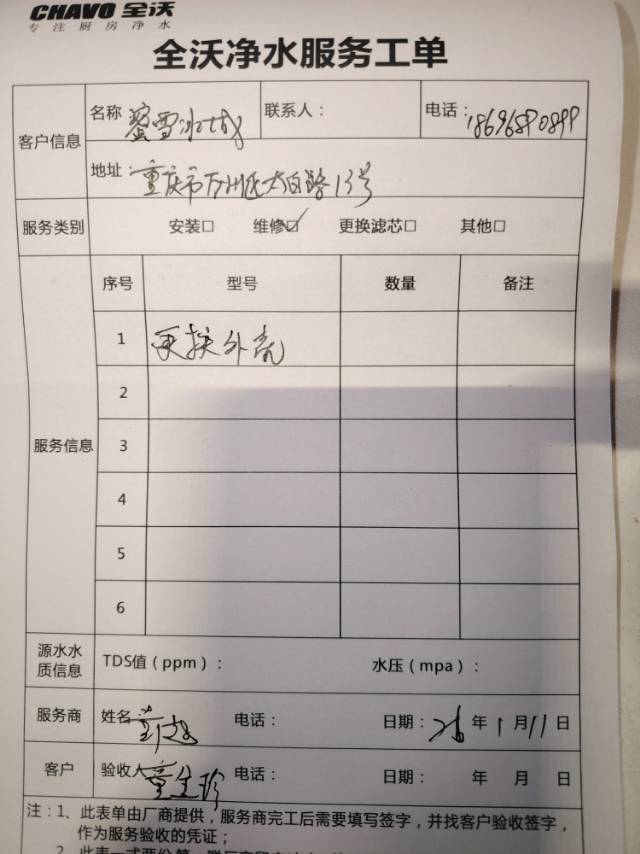 CHAVO 全沃
专注厨房净水
全沃净水服务工单
客户信息
名称 蜜雪冰城 联系人： 电话：18696890899
地址：重庆市万州区太白路13号
服务类别 安装□ 维修☑ 更换滤芯□ 其他□
服务信息
序号 型号 数量 备注
1 更换外壳
2
3
4
5
6
源水水质信息 TDS值（ppm）： 水压（mpa）：
服务商 姓名 电话： 日期：26年1月11日
客户 验收人 电话： 日期： 年 月 日
注：1、此表单由厂商提供，服务商完工后需要填写签字，并找客户验收签字，
作为服务验收的凭证；
2、此表一式两份，第一联厂商留存